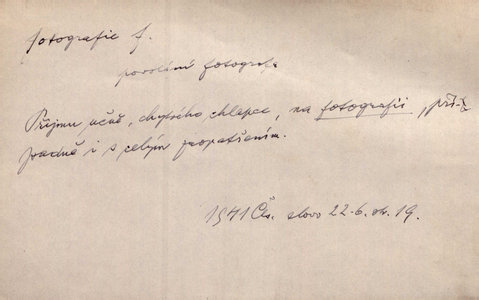 fotografie f.
povolání fotografa
Přijmu učně, chytrého chlapce, na fotografii, pří-
padně i s celým zaopatřením.
1941 Čes. slovo 22.6. str. 19.